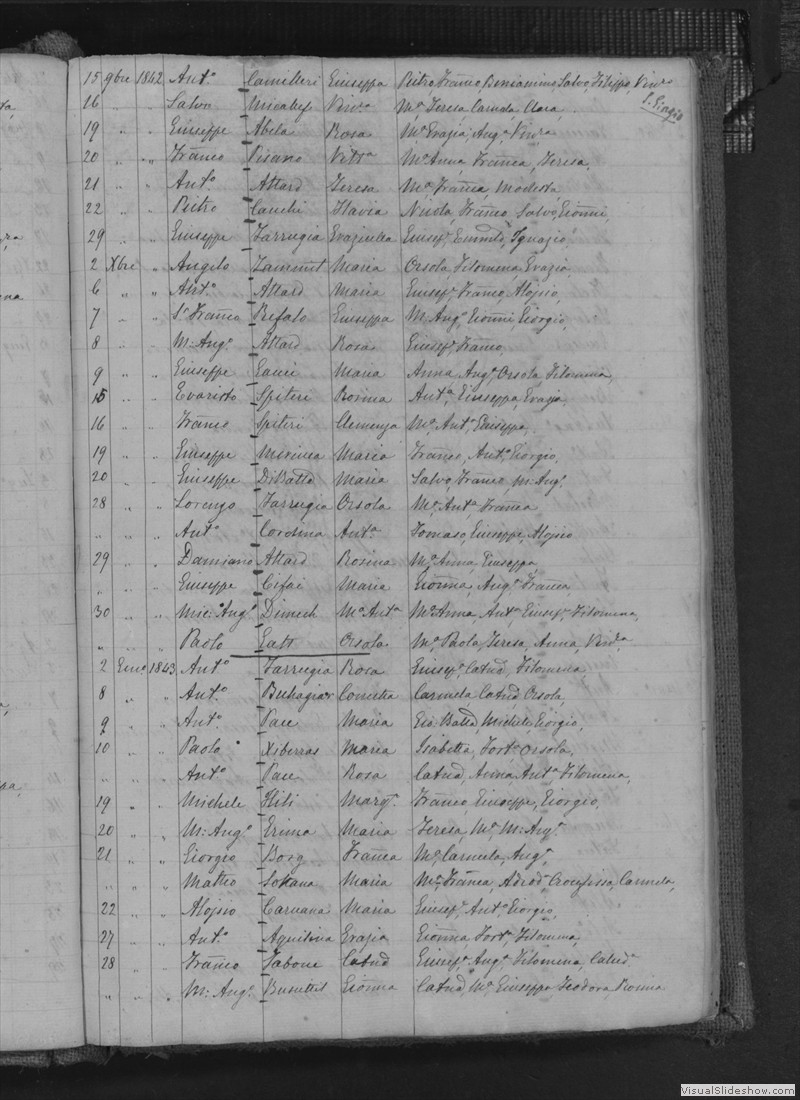 15 9bre 1842 Ant.o Camilleri Giuseppa Pietro, Franco, Beniamino, Salvo, Filippa, Vin.ra
16 " " Salvo Micalef Vin.ra M.a Teresa, Carmela, Clara, S. Giorgio
19 " " Giuseppe Abela Rosa M.a Grazia, Ang.a Vin.ra
20 " " Franco Pisano Vitt.a M.a Anna, Fran.ca, Teresa,
21 " " Ant.o Attard Teresa M.a Fran.ca, Modesta,
22 " " Pietro Cauchi Flavia Nicola, Franco, Salvo, Gionni,
29 " " Giuseppe Farrugia Graziulla Giusep.e Ignazio
2 Xbre " Angelo Zammit Maria Orsola, Filomena, Grazia
6 " " Ant.o Attard Maria Giusep.e Franco, Alojsio,
7 " " S.r Franco Refalo Giuseppa M: Ang.o Gionni, Giorgio,
8 " " M: Ang.o Attard Rosa Giusep.e Franco,
9 " " Giuseppe Gauci Maria Anna, Ang.a Orsola, Filomena,
15 " " Evaristo Spiteri Rosina Ant.a Giuseppa, Grazia,
16 " " Franco Spiteri Clemenza M.a Ant.a Giuseppa,
19 " " Giuseppe Maria Franco, Ant.o Giorgio,
20 " " Giuseppe DiBatta Maria Salvo, Franco, M: Ang.o
28 " " Lorenzo Farrugia Orsola M.a Ant.a Franca
" " " Ant.o Corosina Ant.a Tomaso, Giuseppe, Alojsio
29 " " Damiano Attard Rosina M.a Anna, Giuseppa,
" " " Giuseppe Cefai Maria Gionna, Ang.a Franca,
30 " " Mic: Ang.o Dimech M.a Ant.a M.a Anna, Ant.a Giusep.a Filomena,
" " " Paolo Gatt Orsola M.a Paola, Teresa, Anna, Vin.ra
2 Gen.o 1843 Ant.o Farrugia Rosa Giusep.a Catnd, Filomena,
8 " " Ant.o Buhagiar Concetta Carmela, Catnd, Orsola,
9 " " Ant.o Pace Maria Gio: Batta, Michele, Giorgio,
10 " " Paolo Xiberras Maria Isabetta, Fort.a Orsola,
" " " Ant.o Pace Rosa Catnd, Anna, Ant.a Filomena,
19 " " Michele Hili Marg.a Franco, Giuseppe, Giorgio,
20 " " M: Ang.o Grima Maria Teresa, M.a M: Ang.a
21 " " Giorgio Borg Franca M.a Carmela, Ang.a
" " " Matteo Sultana Maria M.a Franca, Crocifissa, Carmela,
22 " " Alojsio Caruana Maria Giusep.e Ant.o Giorgio,
27 " " Ant.o Aquilina Grazia Gionna, Fort.a Filomena,
28 " " Franco Tabone Catnd Giusep.a Ang.a Filomena, Catnd.a
" " " M: Ang.o Busuttil Gionna Catnd, M.a Giuseppa, Teodora, Rosina
VisualSlideshow.com